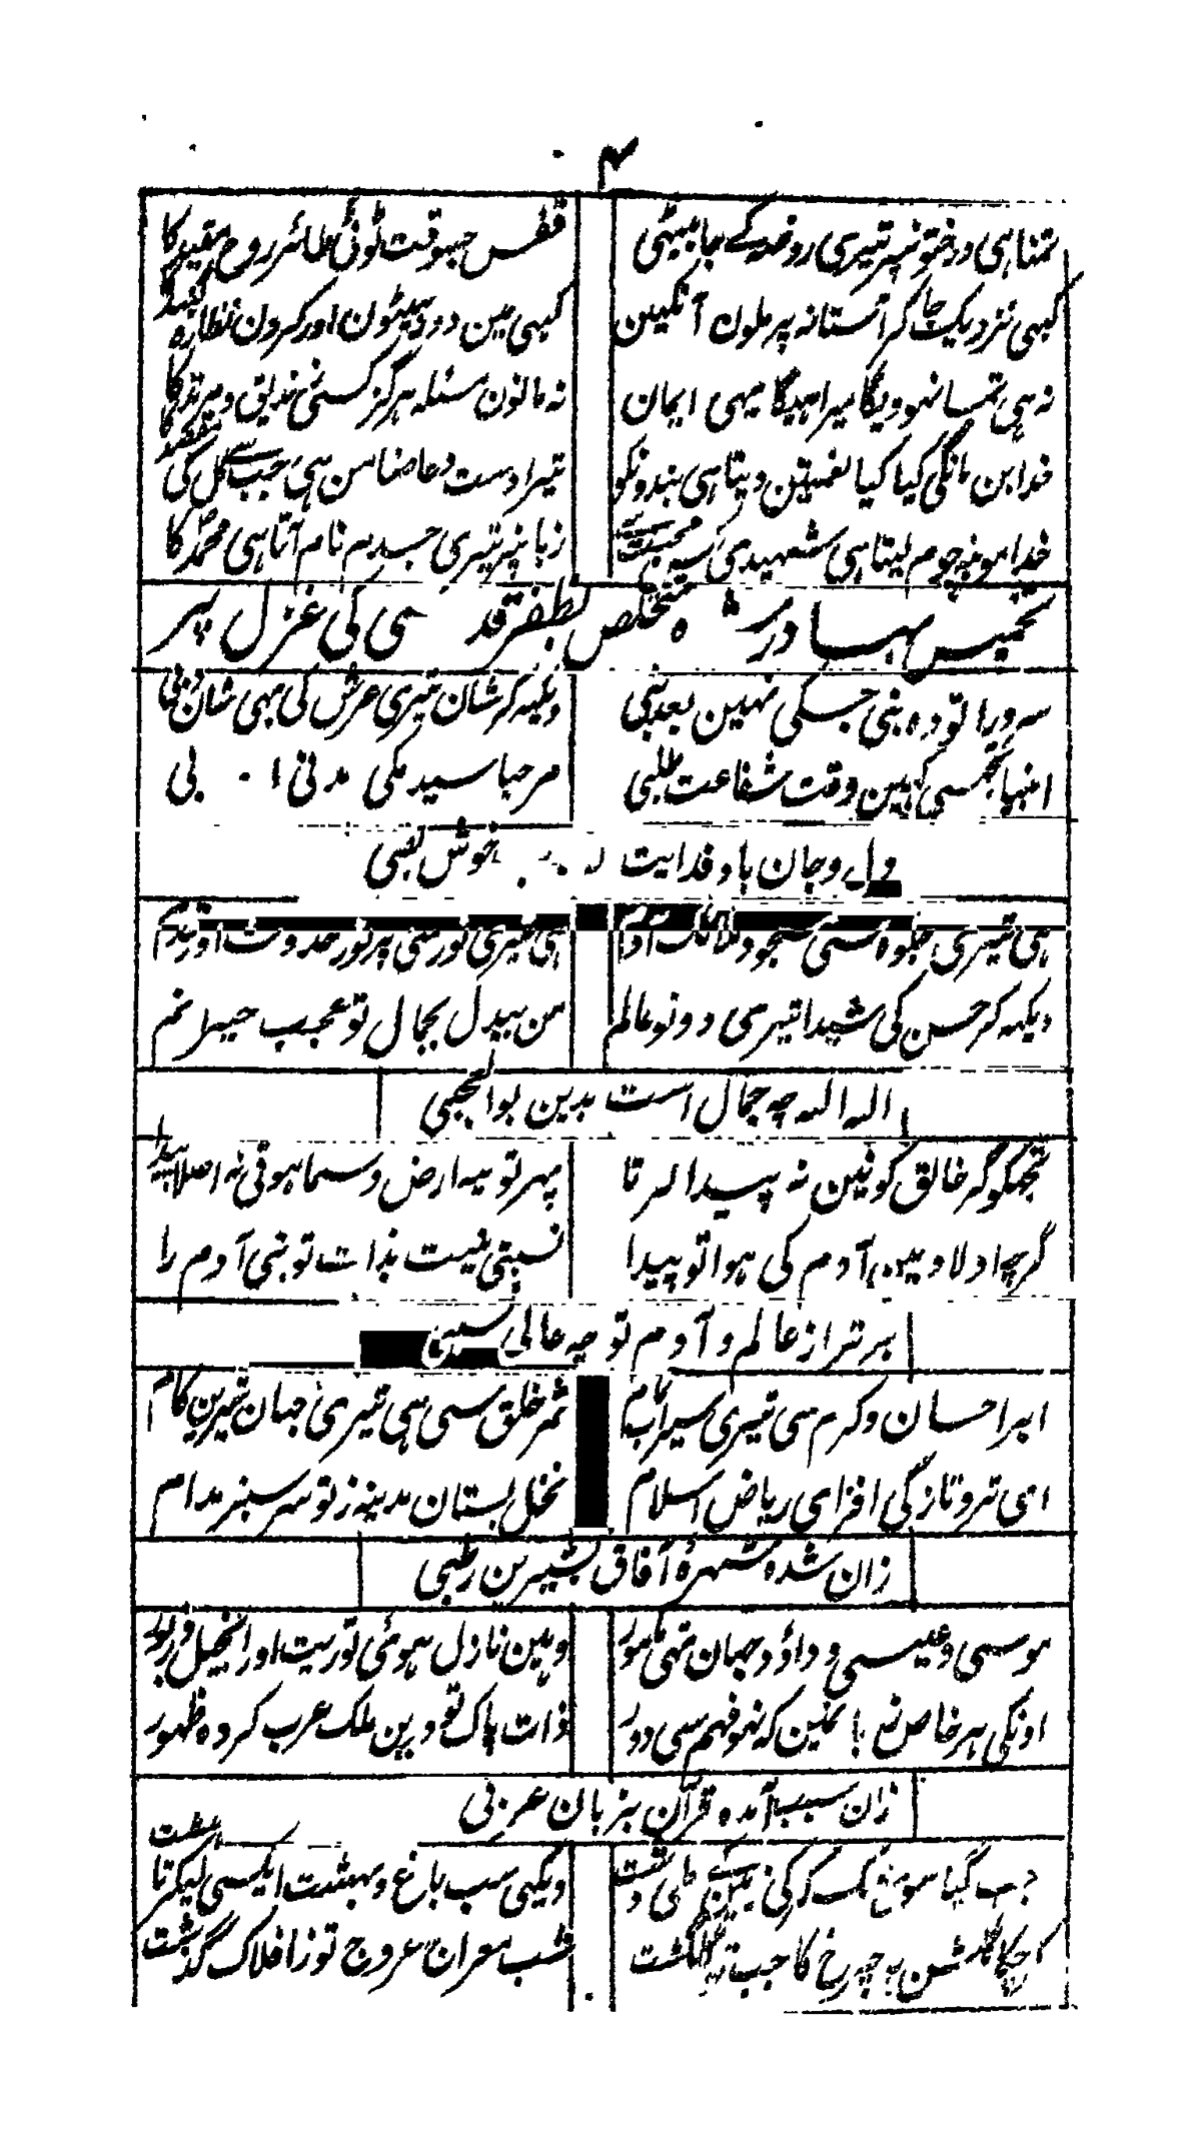 ۴
تمنا ہی درختونپر تیری روضہ کے جا بیٹھی قفس جسوقت ٹوٹی طائر روح مقید کا
کبھی نزدیک جا کر آستانہ پر ملون آنکہین کبہی مین دور بیٹھون اور کرون نظارہ گنبد کا
نہ ہی تمسا نہوویگا میرا ہیگا یہی ایمان نہ مانون مسئلہ ہرگز کسی زندیق و مرتد کا
خدا بن مانگی کیا کیا نعمتین دیتا ہی بندونکو تیرا دست دعا ضامن ہی جب سے کل کی مقصد کا
خدا مونہ چوم لیتا ہی شہیدی کس محبت سے زبانپر تیری جسدم نام آتا ہی محمد کا
تخمیس بہادر ش ہ متخلص بظفر قد سی کی غزل پر
سرورا تو وہ نبی جسکی نہین بعد نبی دیکہہ کر شان تیری عرش کی بہی شان دبی
انبیا تجھسی کہین وقت شفاعت طلبی مرحبا سید مکی مدنی ا بی
دل و جان باد فدایت خوش لقبی
ہی تیری جلوہ سی مسجود ملائک آدم ہی تیری نور سی پر نور حدوث اور قدم
دیکہہ کر حسن کی شیدا تیری دونو عالم من بیدل بجمال تو عجب حیرانم
اللہ اللہ چہ جمال است بدین بوالعجبی
تجھکو گر خالق کونین نہ پیدا کرتا پہر تو یہ ارض و سما ہوتی نہ اصلا پیدا
گرچہ اولاد مین آدم کی ہوا تو پیدا نسبتی نیست بذات تو بنی آدم را
برتر از عالم و آدم تو چہ عالی نسبی
ابر احسان و کرم سی تیری سیراب تمام ثمر خلق سی ہی تیری جہان شیرین کام
ای تر و تازگی افزای ریاض اسلام نخل بستان مدینہ ز تو سرسبز مدام
زان شدہ شہرہ آفاق بشیرین رطبی
موسی و عیسی و داؤد جہان تہی مامور وہین نازل ہوئی توریت اور انجیل و زبور
اونکی ہر خاص نبی با تمکین کہ نہو فہم سی دور ذات پاک تو درین ملک عرب کردہ ظہور
زان سبب آمدہ قرآن بزبان عربی
جب گیا سوی فلک کر کی زمین طی دشت دیکہی سب باغ بہشت ایکسی لیکر تا ہشت
کر چکا گلشن چرخ کا جب تو گلگشت شب معراج عروج تو ز افلاک گذشت